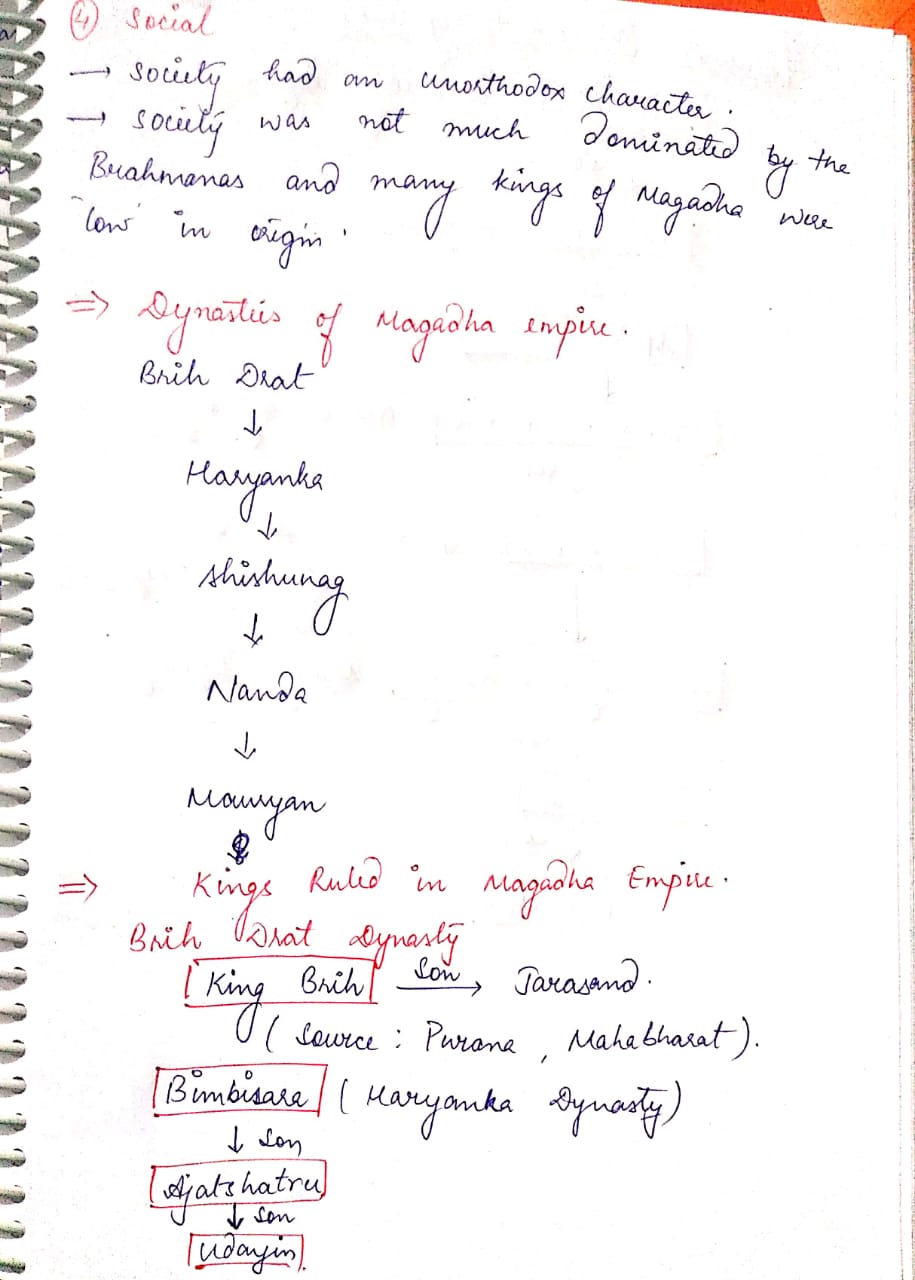 ④ Social
→ Society had an unorthodox character.
→ Society was not much dominated by the
Brahmanas and many kings of Magadha were
'low' in origin.
⇒ Dynasties of Magadha empire.
Brih Drat
↓
Haryanka
↓
Shishunag
↓
Nanda
↓
Mauryan
⇒ Kings Ruled in Magadha Empire.
Brih Drat Dynasty
King Brih Son → Jarasand.
( Source : Purana , Mahabharat ).
Bimbisara ( Haryanka Dynasty )
↓ Son
Ajatshatru
↓ Son
Udayin.